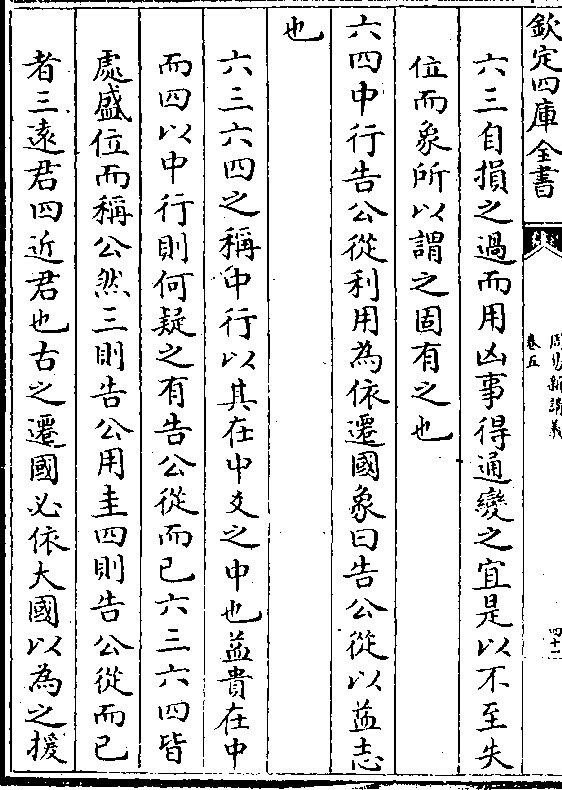 欽定四庫全書
周易新講義
卷五
四十一
六三自損之過而用凶事得通變之宜是以不至失
位而象所以謂之固有之也
六四中行告公從利用為依遷國象曰告公從以益志
也
六三六四之稱中行以其在中爻之中也益貴在中
而四以中行則何疑之有告公從而已六三六四皆
處盛位而稱公然三則告公用圭四則告公從而已
者三遠君四近君也古之遷國必依大國以為之援